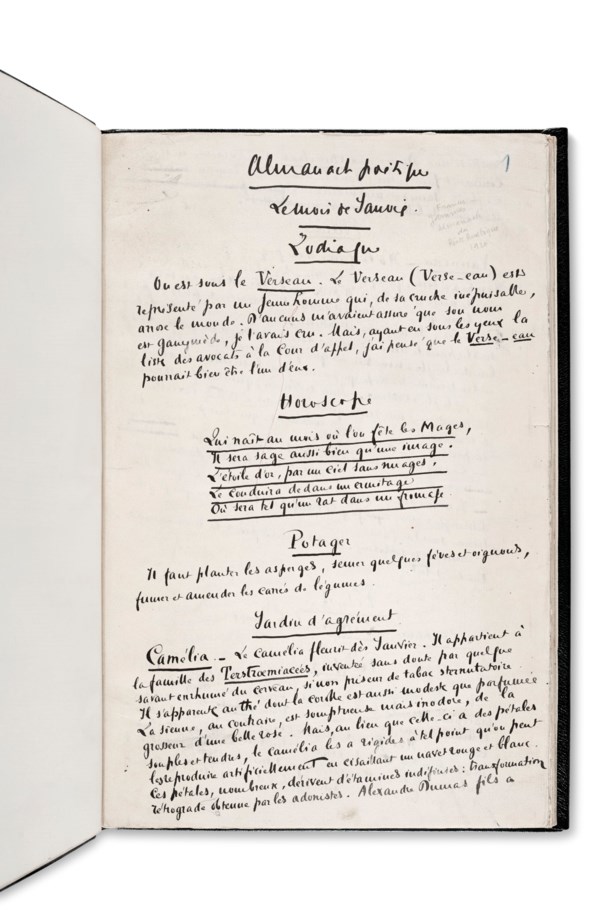 1
Almanach poétique
Le mois de Janvier.
Zodiaque
On est sous le Verseau. Le Verseau (Verse-eau) est
représenté par un jeune homme qui, de sa cruche inépuisable,
arrose le monde. D'aucuns m'avaient assuré que son nom
est ganymède, je l'avais cru. Mais, ayant eu sous les yeux la
liste des avocats à la Cour d'appel, j'ai pensé que le Verse-eau
pourrait bien être l'un d'eux.
Horoscope
Qui naît au mois où l'on fête les Mages,
Il sera sage aussi bien qu'une image.
L'étoile d'or, par un ciel sans nuages,
Le conduira dedans un ermitage
Où sera tel qu'un rat dans un fromage.
Potager
Il faut planter les asperges, semer quelques fèves et oignons,
fumer et amender les carrés de légumes.
Jardin d'agrément
Camélia. - Le camélia fleurit dès Janvier. Il appartient à
la famille des Terstrœmiacées, inventée sans doute par quelque
savant enrhumé du cerveau, sinon priseur de tabac sternutatoire.
Il s'apparente au thé dont la corolle est aussi modeste que parfumée.
La sienne, au contraire, est somptueuse mais inodore, de la
grosseur d'une belle rose. Mais, au lieu que celle-ci a des pétales
souples et tendres, le camélia les a rigides à tel point qu'on peut
les reproduire artificiellement en cisaillant un navet rouge et blanc.
Ces pétales, nombreux, dérivent d'étamines indéfinies: transformation
rétrograde obtenue par les adonistes. Alexandre Dumas fils a